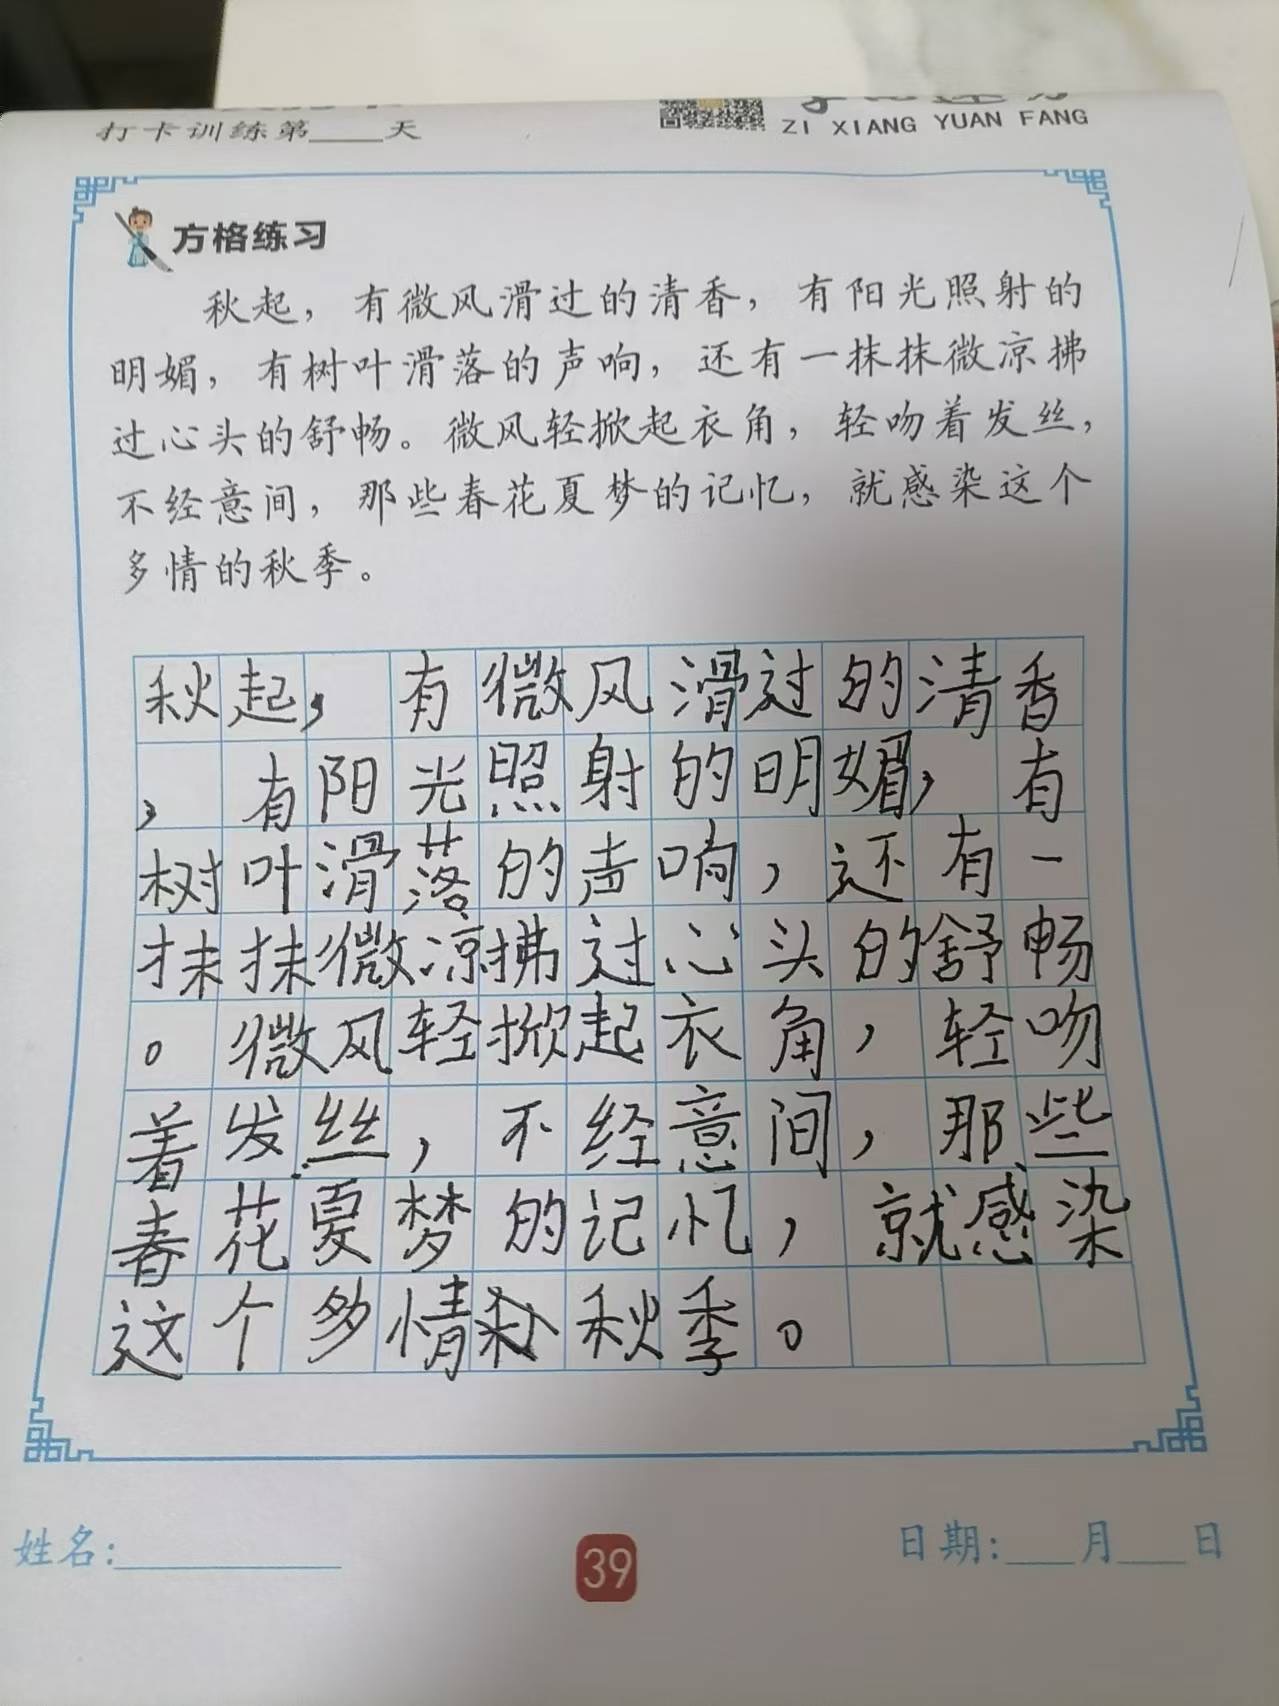 打卡训练第____天
ZI XIANG YUAN FANG
方格练习
秋起，有微风滑过的清香，有阳光照射的
明媚，有树叶滑落的声响，还有一抹抹微凉拂
过心头的舒畅。微风轻掀起衣角，轻吻着发丝，
不经意间，那些春花夏梦的记忆，就感染这个
多情的秋季。
秋起，有微风滑过的清香
，有阳光照射的明媚，有
树叶滑落的声响，还有一
抹抹微凉拂过心头的舒畅
。微风轻掀起衣角，轻吻
着发丝，不经意间，那些
春花夏梦的记忆，就感染
这个多情秋季。
姓名:
39
日期:___月___日